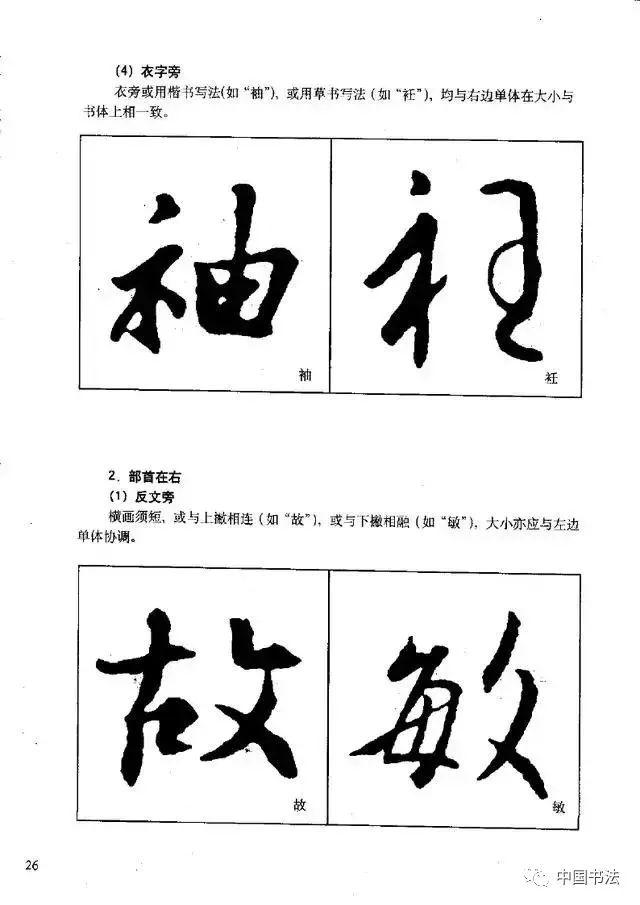 (4) 衣字旁
衣旁或用楷书写法(如“袖”), 或用草书写法(如“衽”), 均与右边单体在大小与
书体上相一致。
袖
衽
袖
衽
2. 部首在右
(1) 反文旁
横画须短, 或与上撇相连(如“故”), 或与下撇相融(如“敏”), 大小亦应与左边
单体协调。
故
敏
故
敏
26
中国书法